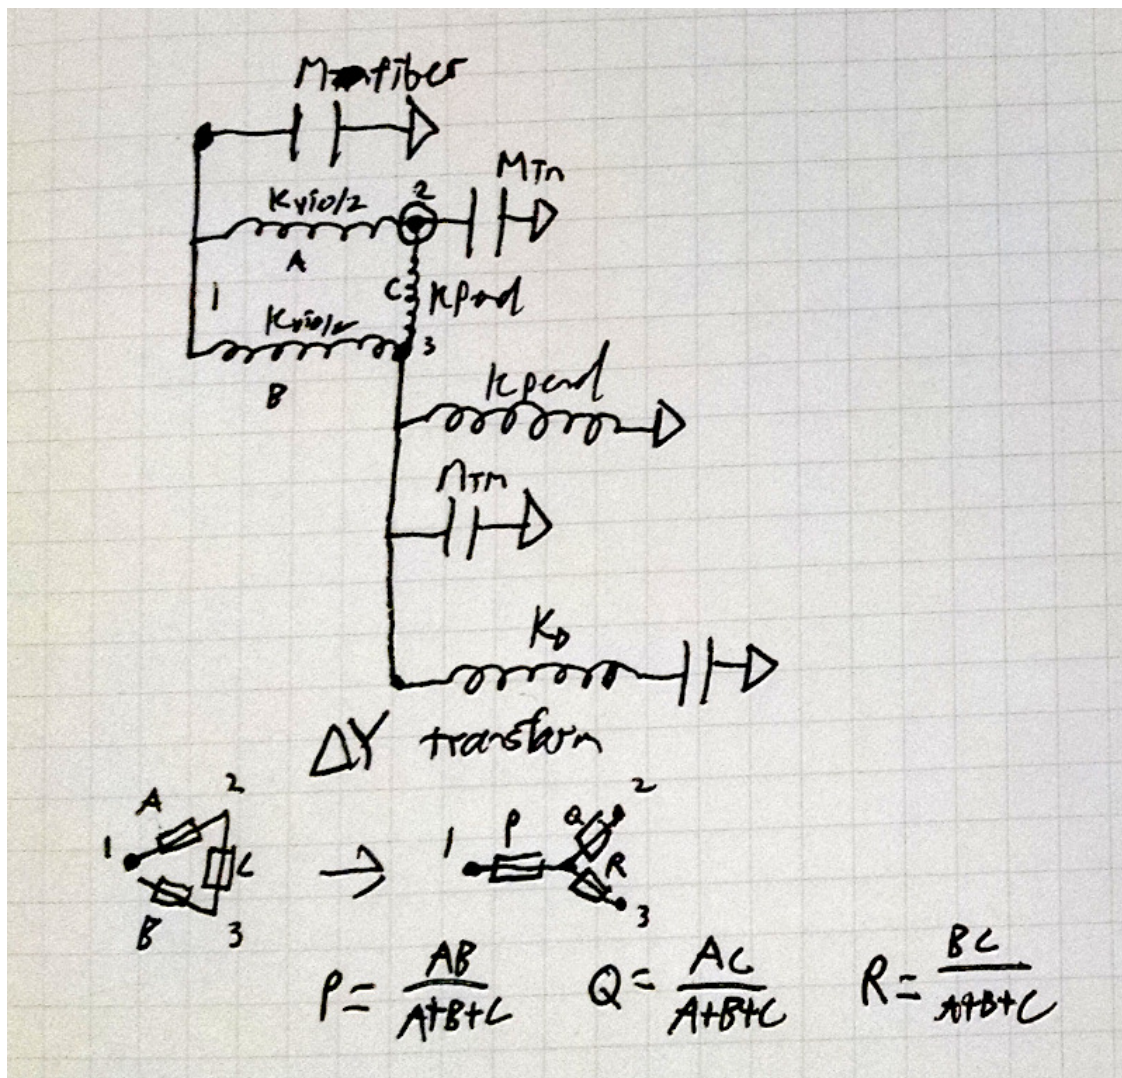 Mfiber
MTM
Kvio/2
2
A
1
C
Kpend
Kvio/2
3
B
Kpend
MTM
KD
ΔY transform
A
2
1
C
B
3
1
P
Q
2
R
3
P = AB/A+B+C
Q = AC/A+B+C
R = BC/A+B+C